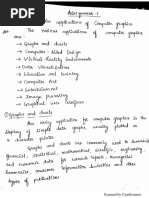 Assignment-1
applications of Computer graphics
Ans The various applications of computer graphics
are:-
→ Graphs and charts
→ Computer-Aided Design
→ Virtual Reality Environments
→ Data Visualizations
→ Education and training
→ Computer Art
→ Entertainment
→ Image processing
→ Graphical user interface
Graphs and charts
An early application for computer graphics is the
display of simple data graphs, usually plotted on a
character printer.
Graphs and charts are commonly used to summarize
financial, statistical, mathematical, engineering and
economic data for research reports, managerial
summaries, consumer information bulletins and other
types of publications
Scanned by CamScanner